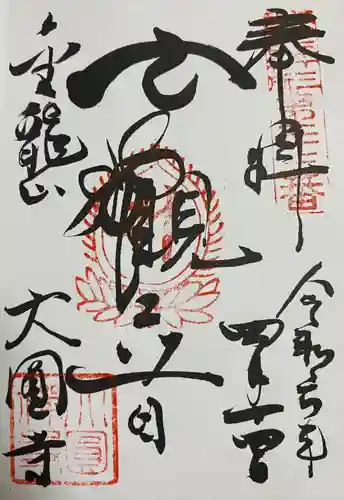 奉拝
七観音
金龍山
大圓寺
令和五年
四月十四日